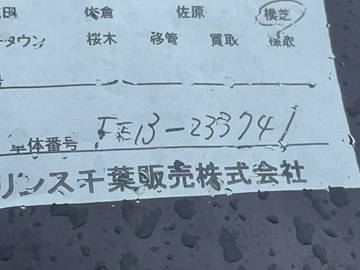 佐倉 佐原 横芝
ータウン 桜木 移管 買取 抹取
車体番号 FE13-233741
リンス千葉販売株式会社